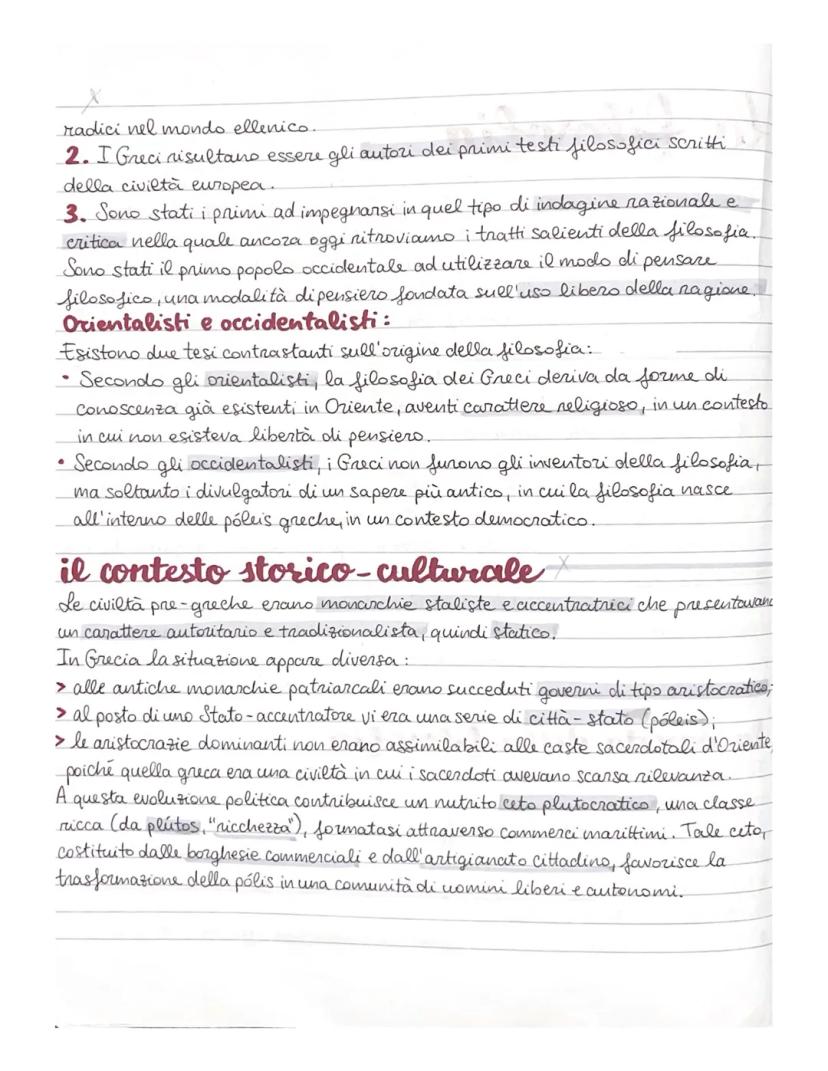 radici nel mondo ellenico.
2. I Greci risultano essere gli autori dei primi testi filosofici scritti
della civiltà europea.
3. Sono stati i primi ad impegnarsi in quel tipo di indagine razionale e
critica nella quale ancora oggi ritroviamo i tratti salienti della filosofia.
Sono stati il primo popolo occidentale ad utilizzare il modo di pensare
filosofico, una modalità di pensiero fondata sull'uso libero della ragione.
Orientalisti e occidentalisti:
Esistono due tesi contrastanti sull'origine della filosofia:
• Secondo gli orientalisti, la filosofia dei Greci deriva da forme di
conoscenza già esistenti in Oriente, aventi carattere religioso, in un contesto
in cui non esisteva libertà di pensiero.
• Secondo gli occidentalisti, i Greci non furono gli inventori della filosofia,
ma soltanto i divulgatori di un sapere più antico, in cui la filosofia nasce
all'interno delle póleis greche, in un contesto democratico.
il contesto storico-culturale
Le civiltà pre-greche erano monarchie staliste e accentratrici che presentavano
un carattere autoritario e tradizionalista, quindi statico.
In Grecia la situazione appare diversa:
> alle antiche monarchie patriarcali erano succeduti governi di tipo aristocratico;
> al posto di uno Stato-accentratore vi era una serie di città-stato (póleis);
> le aristocrazie dominanti non erano assimilabili alle caste sacerdotali d'Oriente,
poiché quella greca era una civiltà in cui i sacerdoti avevano scarsa rilevanza.
A questa evoluzione politica contribuisce un nutrito ceto plutocratico, una classe
ricca (da plútos, "ricchezza"), formatasi attraverso commerci marittimi. Tale ceto,
costituito dalle borghesie commerciali e dall'artigianato cittadino, favorisce la
trasformazione della pólis in una comunità di uomini liberi e autonomi.